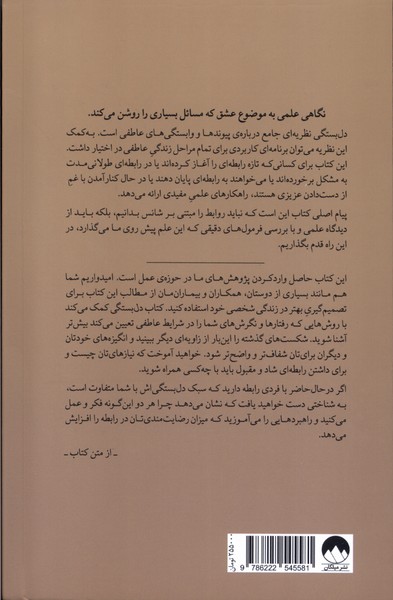 نگاهی علمی به موضوع عشق که مسائل بسیاری را روشن می‌کند.
دل‌بستگی نظریه‌ای جامع درباره‌ی پیوندها و وابستگی‌های عاطفی است. به‌کمک
این نظریه می‌توان برنامه‌ای کاربردی برای تمام مراحل زندگی عاطفی در اختیار داشت.
این کتاب برای کسانی‌که تازه رابطه‌ای را آغاز کرده‌اند یا در رابطه‌ای طولانی‌مدت
به مشکل برخورده‌اند یا می‌خواهند به رابطه‌ای پایان دهند یا در حال کنارآمدن با غم
از دست‌دادن عزیزی هستند، راهکارهای علمیِ مفیدی ارائه می‌دهد.
پیام اصلی کتاب این است که نباید روابط را مبتنی بر شانس بدانیم، بلکه باید از
دیدگاه علمی و با بررسی فرمول‌های دقیقی که این علم پیش روی ما می‌گذارد، در
این راه قدم بگذاریم.
این کتاب حاصل واردکردن پژوهش‌های ما در حوزه‌ی عمل است. امیدواریم شما
هم مانند بسیاری از دوستان، همکاران و بیماران‌مان از مطالب این کتاب برای
تصمیم‌گیری بهتر در زندگی شخصی خود استفاده کنید. کتاب دل‌بستگی کمک می‌کند
با روش‌هایی که رفتارها و نگرش‌های شما را در شرایط عاطفی تعیین می‌کند بیش‌تر
آشنا شوید. شکست‌های گذشته را این‌بار از زاویه‌ای دیگر ببینید و انگیزه‌های خودتان
و دیگران برای‌تان شفاف‌تر و واضح‌تر شود. خواهید آموخت که نیازهای‌تان چیست و
برای داشتن رابطه‌ای شاد و مقبول باید با چه‌کسی همراه شوید.
اگر در‌حال‌حاضر با فردی رابطه دارید که سبک دل‌بستگی‌اش با شما متفاوت است،
به شناختی دست خواهید یافت که نشان می‌دهد چرا هر دو این‌گونه فکر و عمل
می‌کنید و راهبردهایی را می‌آموزید که میزان رضایت‌مندی‌تان در رابطه را افزایش
می‌دهد.
ـ از متن کتاب ـ
۲۵۵۰۰۰ تومان
9 786222 545581
نشر میلکان